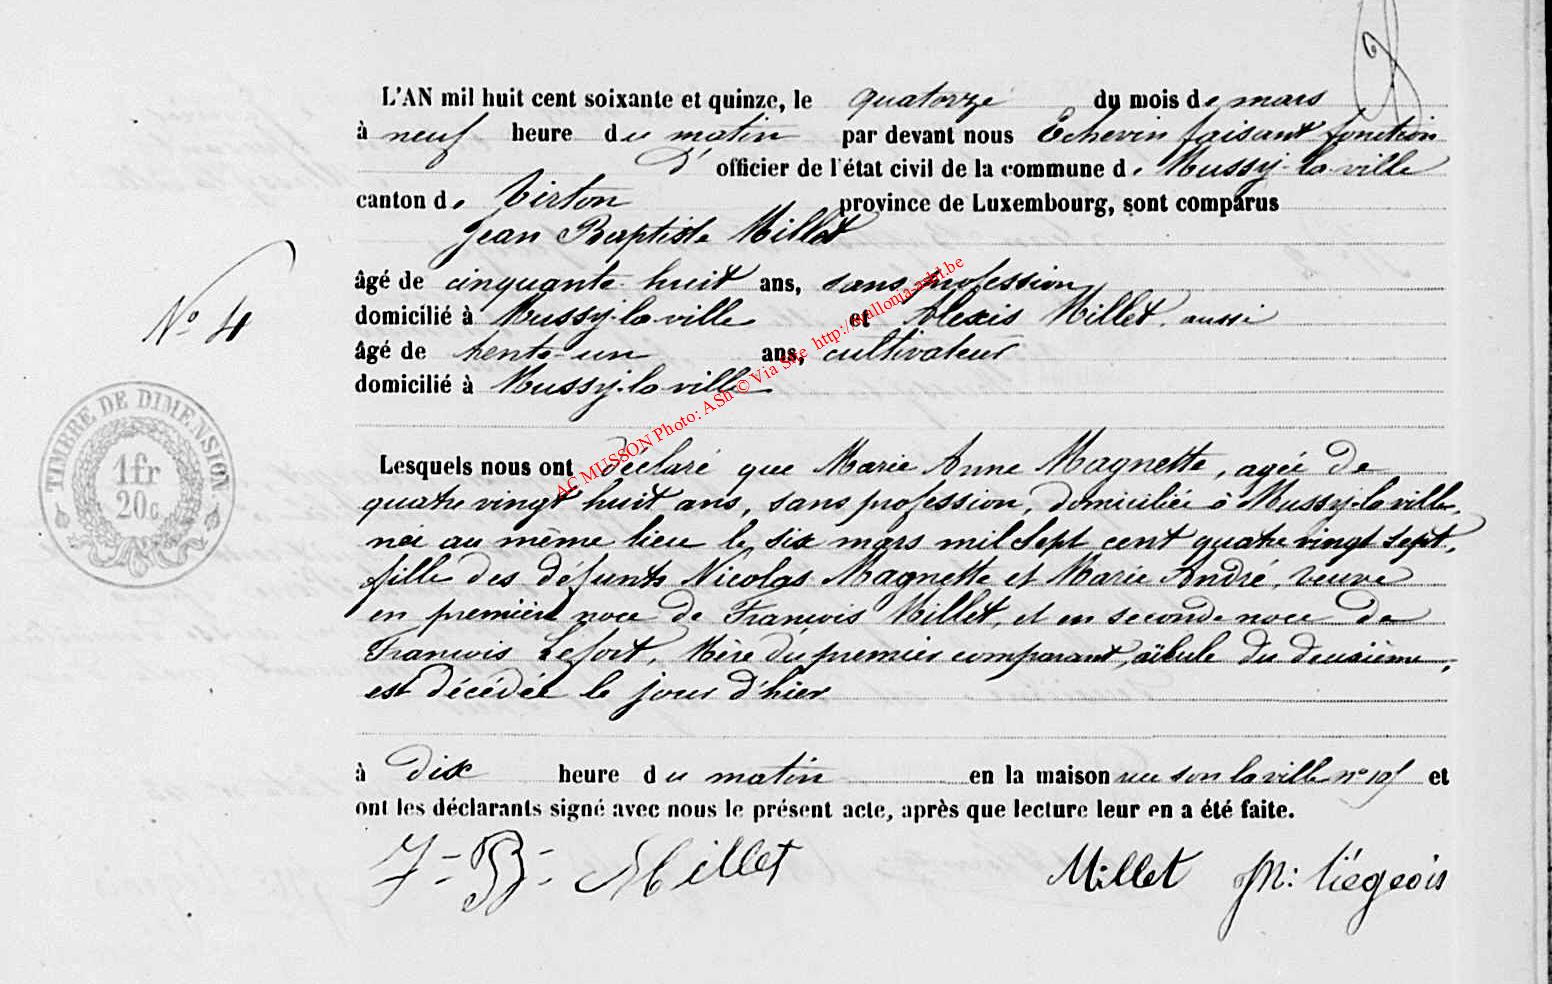 L'AN mil huit cent soixante et quinze, le quatorze du mois de mars
à neuf heure du matin par devant nous Echevin faisant fonction
d' officier de l'état civil de la commune de Mussy-la-ville
canton de Virton province de Luxembourg, sont comparus
Jean Baptiste Millet
âgé de cinquante-huit ans, sans profession
domicilié à Mussy-la-ville et Alexis Millet, aussi
N° 4
âgé de trente-un ans, cultivateur
domicilié à Mussy-la-ville
TIMBRE DE DIMENSION
1 fr
20 c
AC MUSSON Photo: ASh © Via Site http://wallonia-asbl.be
Lesquels nous ont déclaré que Marie Anne Magnette, agée de
quatre vingt huit ans, sans profession, domiciliée à Mussy-la-ville,
née au même lieu le six mars mil sept cent quatre vingt sept,
fille des défunts Nicolas Magnette et Marie André, veuve
en première noce de Francois Millet, et en seconde noce de
Francois Lefort, Mère du premier comparant, aïeule du deuxième,
est décédée le jour d'hier
à dix heure du matin en la maison rue son la ville n° et
ont les déclarants signé avec nous le présent acte, après que lecture leur en a été faite.
J-B- Millet Millet M: Liégeois